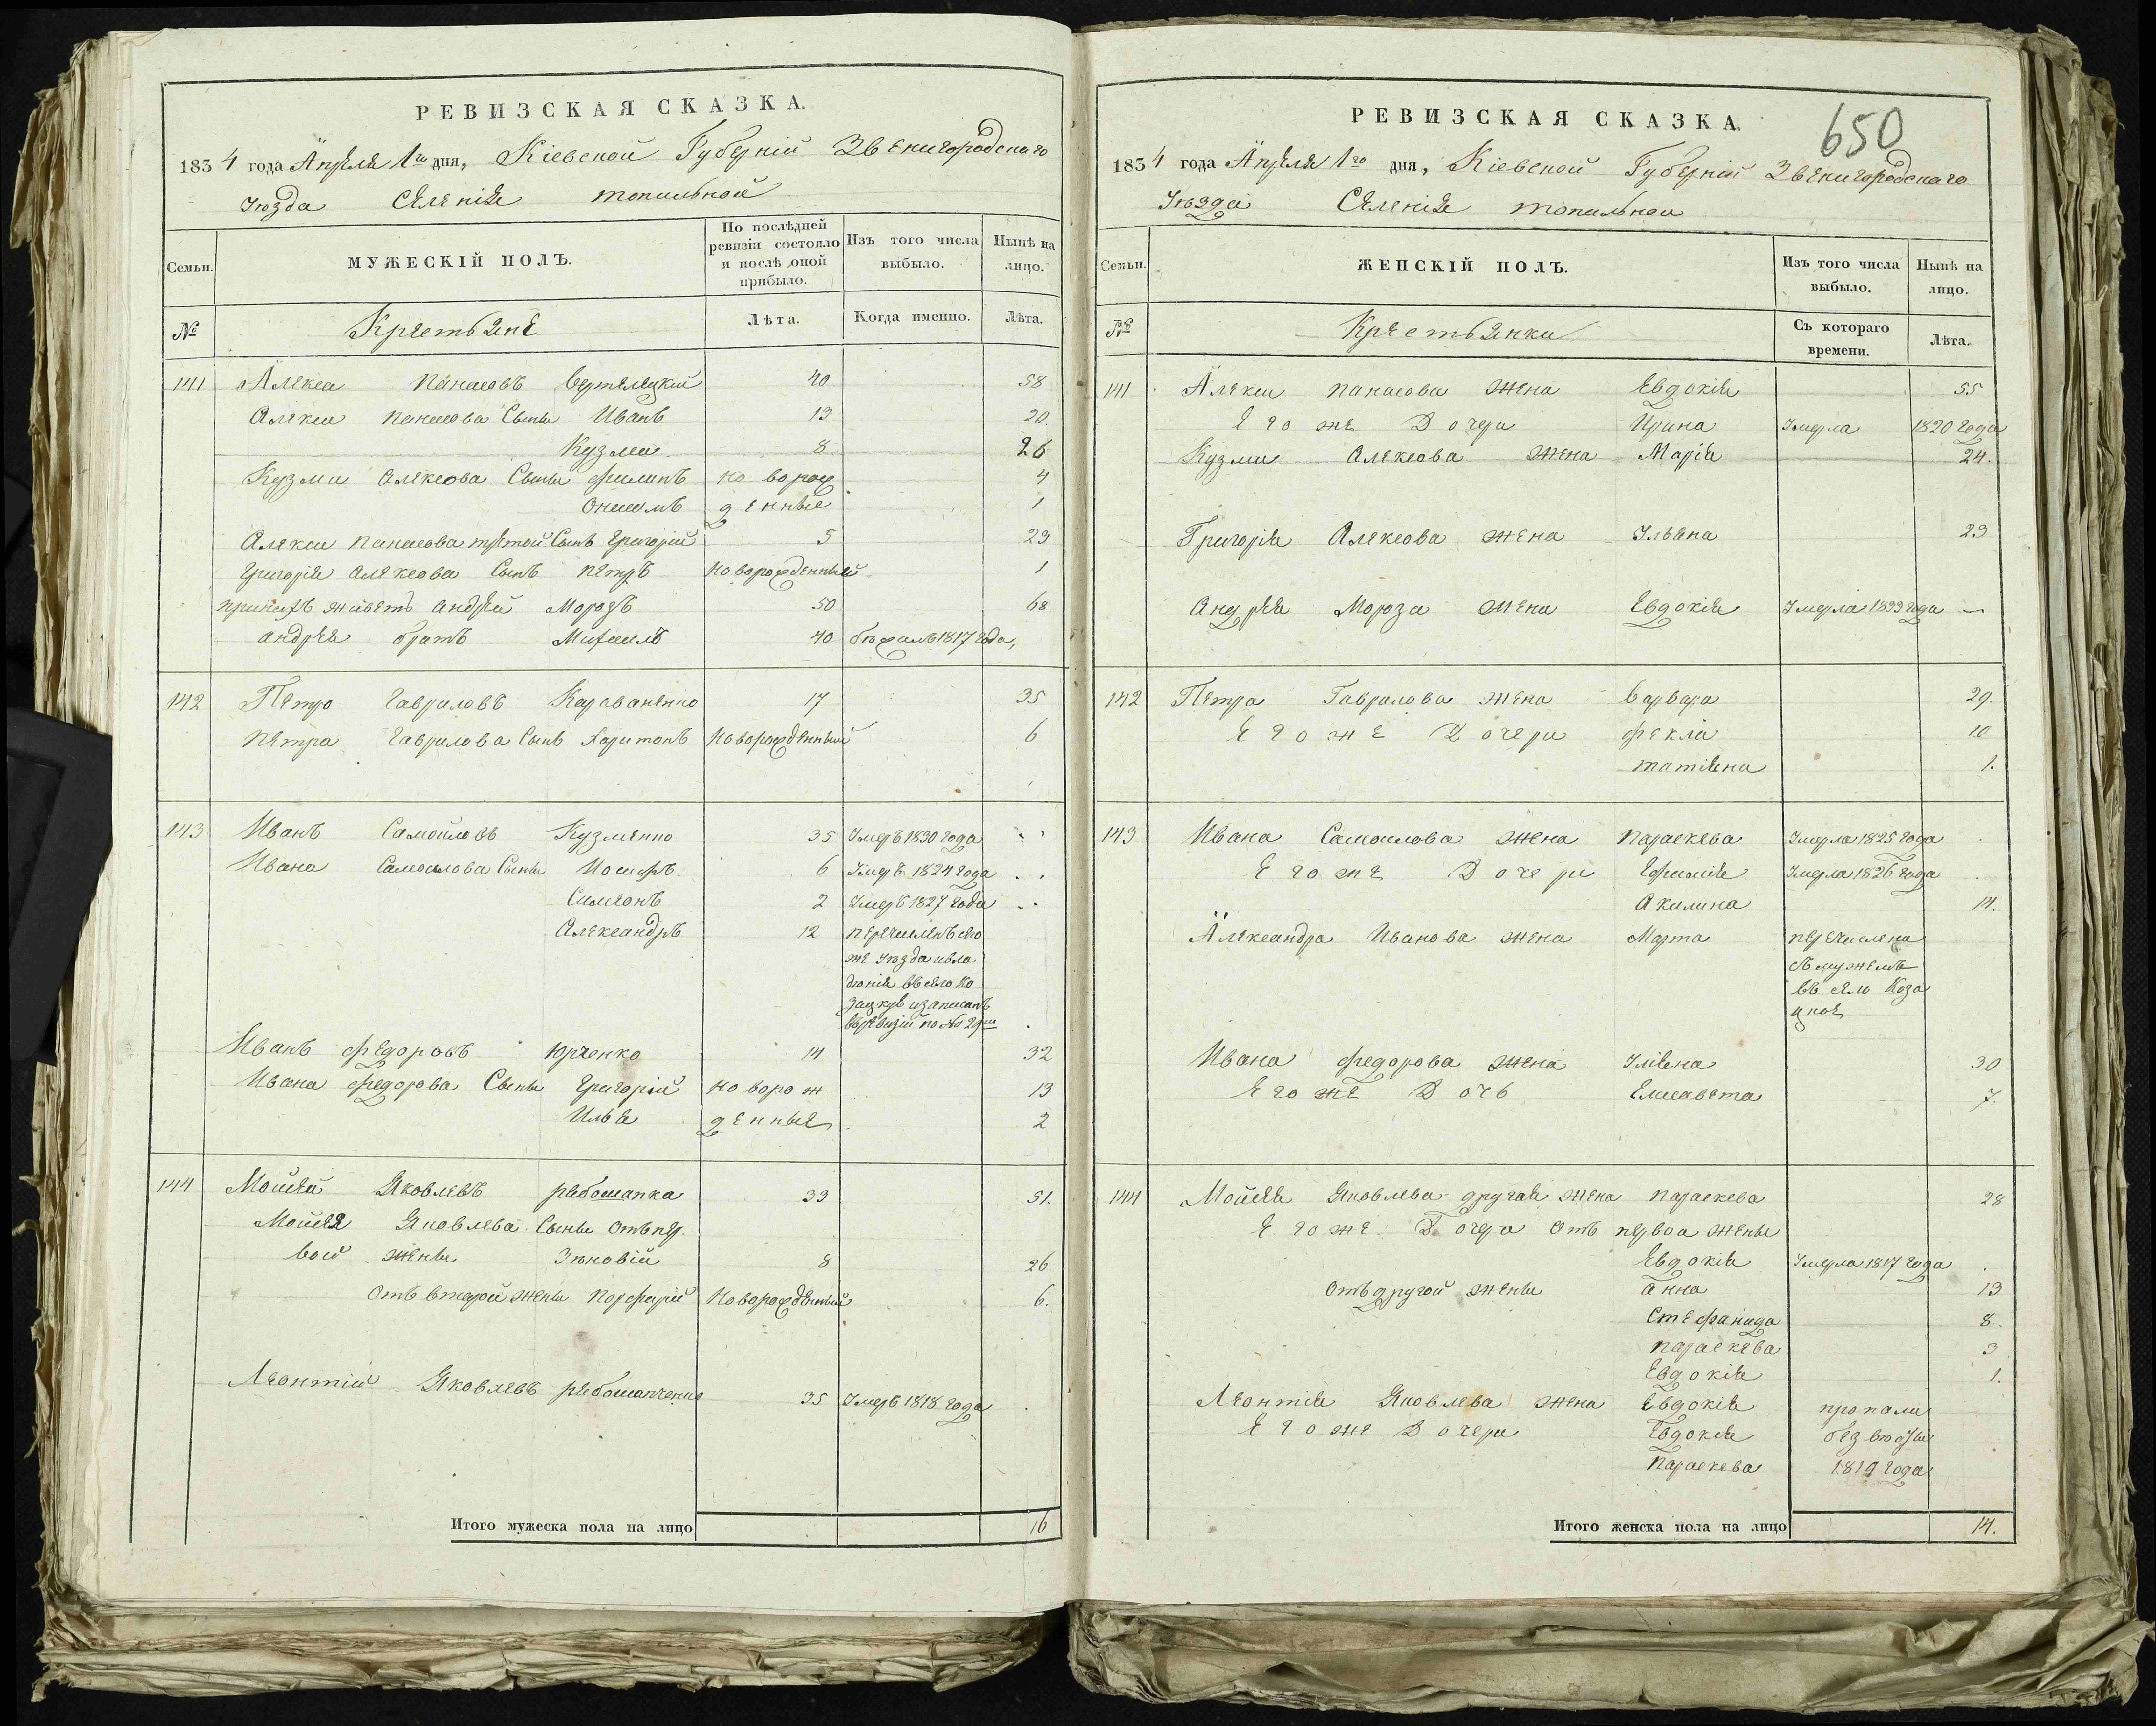 РЕВИЗСКАЯ СКАЗКА.
1834 года Апреля 1го дня, Кіевской Губерніи Звенигородскаго
Уезда Селенія топильной
Семьи. МУЖЕСКІЙ ПОЛЪ. По послѣдней ревизіи состояло и послѣ оной прибыло. Изъ того числа выбыло. Нынѣ на лицо.
№ Крестьяне Лѣта. Когда именно. Лѣта.
141 Алекса Панасовъ Вертелецкій 40 58
Алексы Панасова Сыны Иванъ 19 20.
Кузма 8 26
Кузмы Алексова Сыны Филипъ но ворож 4
Онисимъ денные 1
Алексы Панасова третой Сынъ Григорій 5 23
Григорія Алексова Сынъ Петръ новорожденный 1
при нихъ живетъ Андрей Морозъ 50 68
Андрея братъ Михаилъ 40 бежалъ 1817 года,
142 Петро Гавриловъ Караваненко 17 35
Петра Гаврилова Сынъ Харитонъ новорожденный 6
143 Иванъ Самойловъ Кузменко 35 Умеръ 1830 года
Ивана Самойлова Сыны Иосифъ 6 Умеръ 1824 года
Симеонъ 2 Умеръ 1827 года
Александръ 12 перечисленъ сего
же уезда и вла
денія въ село Ко
зацкое и записанъ
въ ревизіи по № 29м
Иванъ Федоровъ Юрченко 14 32
Ивана Федорова Сыны Григорій но ворож 13
Илья денные 2
144 Мойсей Яковлевъ рябошапка 33 51.
Мойсея Яковлева Сыны Отъ пер
вой жены Зѣновій 8 26
Отъ второй жены Порфирій Новорожденный 6.
Леонтій Яковлевъ рябошапченко 35 Умеръ 1818 года
Итого мужеска пола на лицо 16

650
РЕВИЗСКАЯ СКАЗКА.
1834 года Апреля 1го дня, Кіевской Губерніи Звенигородскаго
Уезда Селенія топильной
Семьи. ЖЕНСКІЙ ПОЛЪ. Изъ того числа выбыло. Нынѣ на лицо.
№ Крестьянки Съ котораго времени. Лѣта.
141 Алексы Панасова жена Евдокія 55
Его же Дочери Ирина Умерла 1820 года
Кузмы Алексова жена Марія 24.
Григорія Алексова жена Ульяна 23
Андрея Мороза жена Евдокія Умерла 1833 года
142 Петра Гаврилова жена Варвара 29.
Его же Дочери Фекла 10
татіяна 1.
143 Ивана Самойлова жена Параскева Умерла 1825 года
Его же Дочери Ефимія Умерла 1826 года
Акилина 14.
Александра Иванова жена Марта перечислена
съ мужемъ
въ село Коза
цкое
Ивана Федорова жена Уліяна 30
Его же Дочь Елисавета 7.
144 Мойсея Яковлева другая жена Параскева 28
Его же Дочера Отъ первоа жены
Евдокія Умерла 1817 года
Отъ другой жены Анна 13
Стефанида 8.
Параскева 3
Евдокія 1.
Леонтія Яковлева жена Евдокія пропали
Его же Дочери Евдокія без вести
Параскева 1819 года
Итого женска пола на лицо 14.